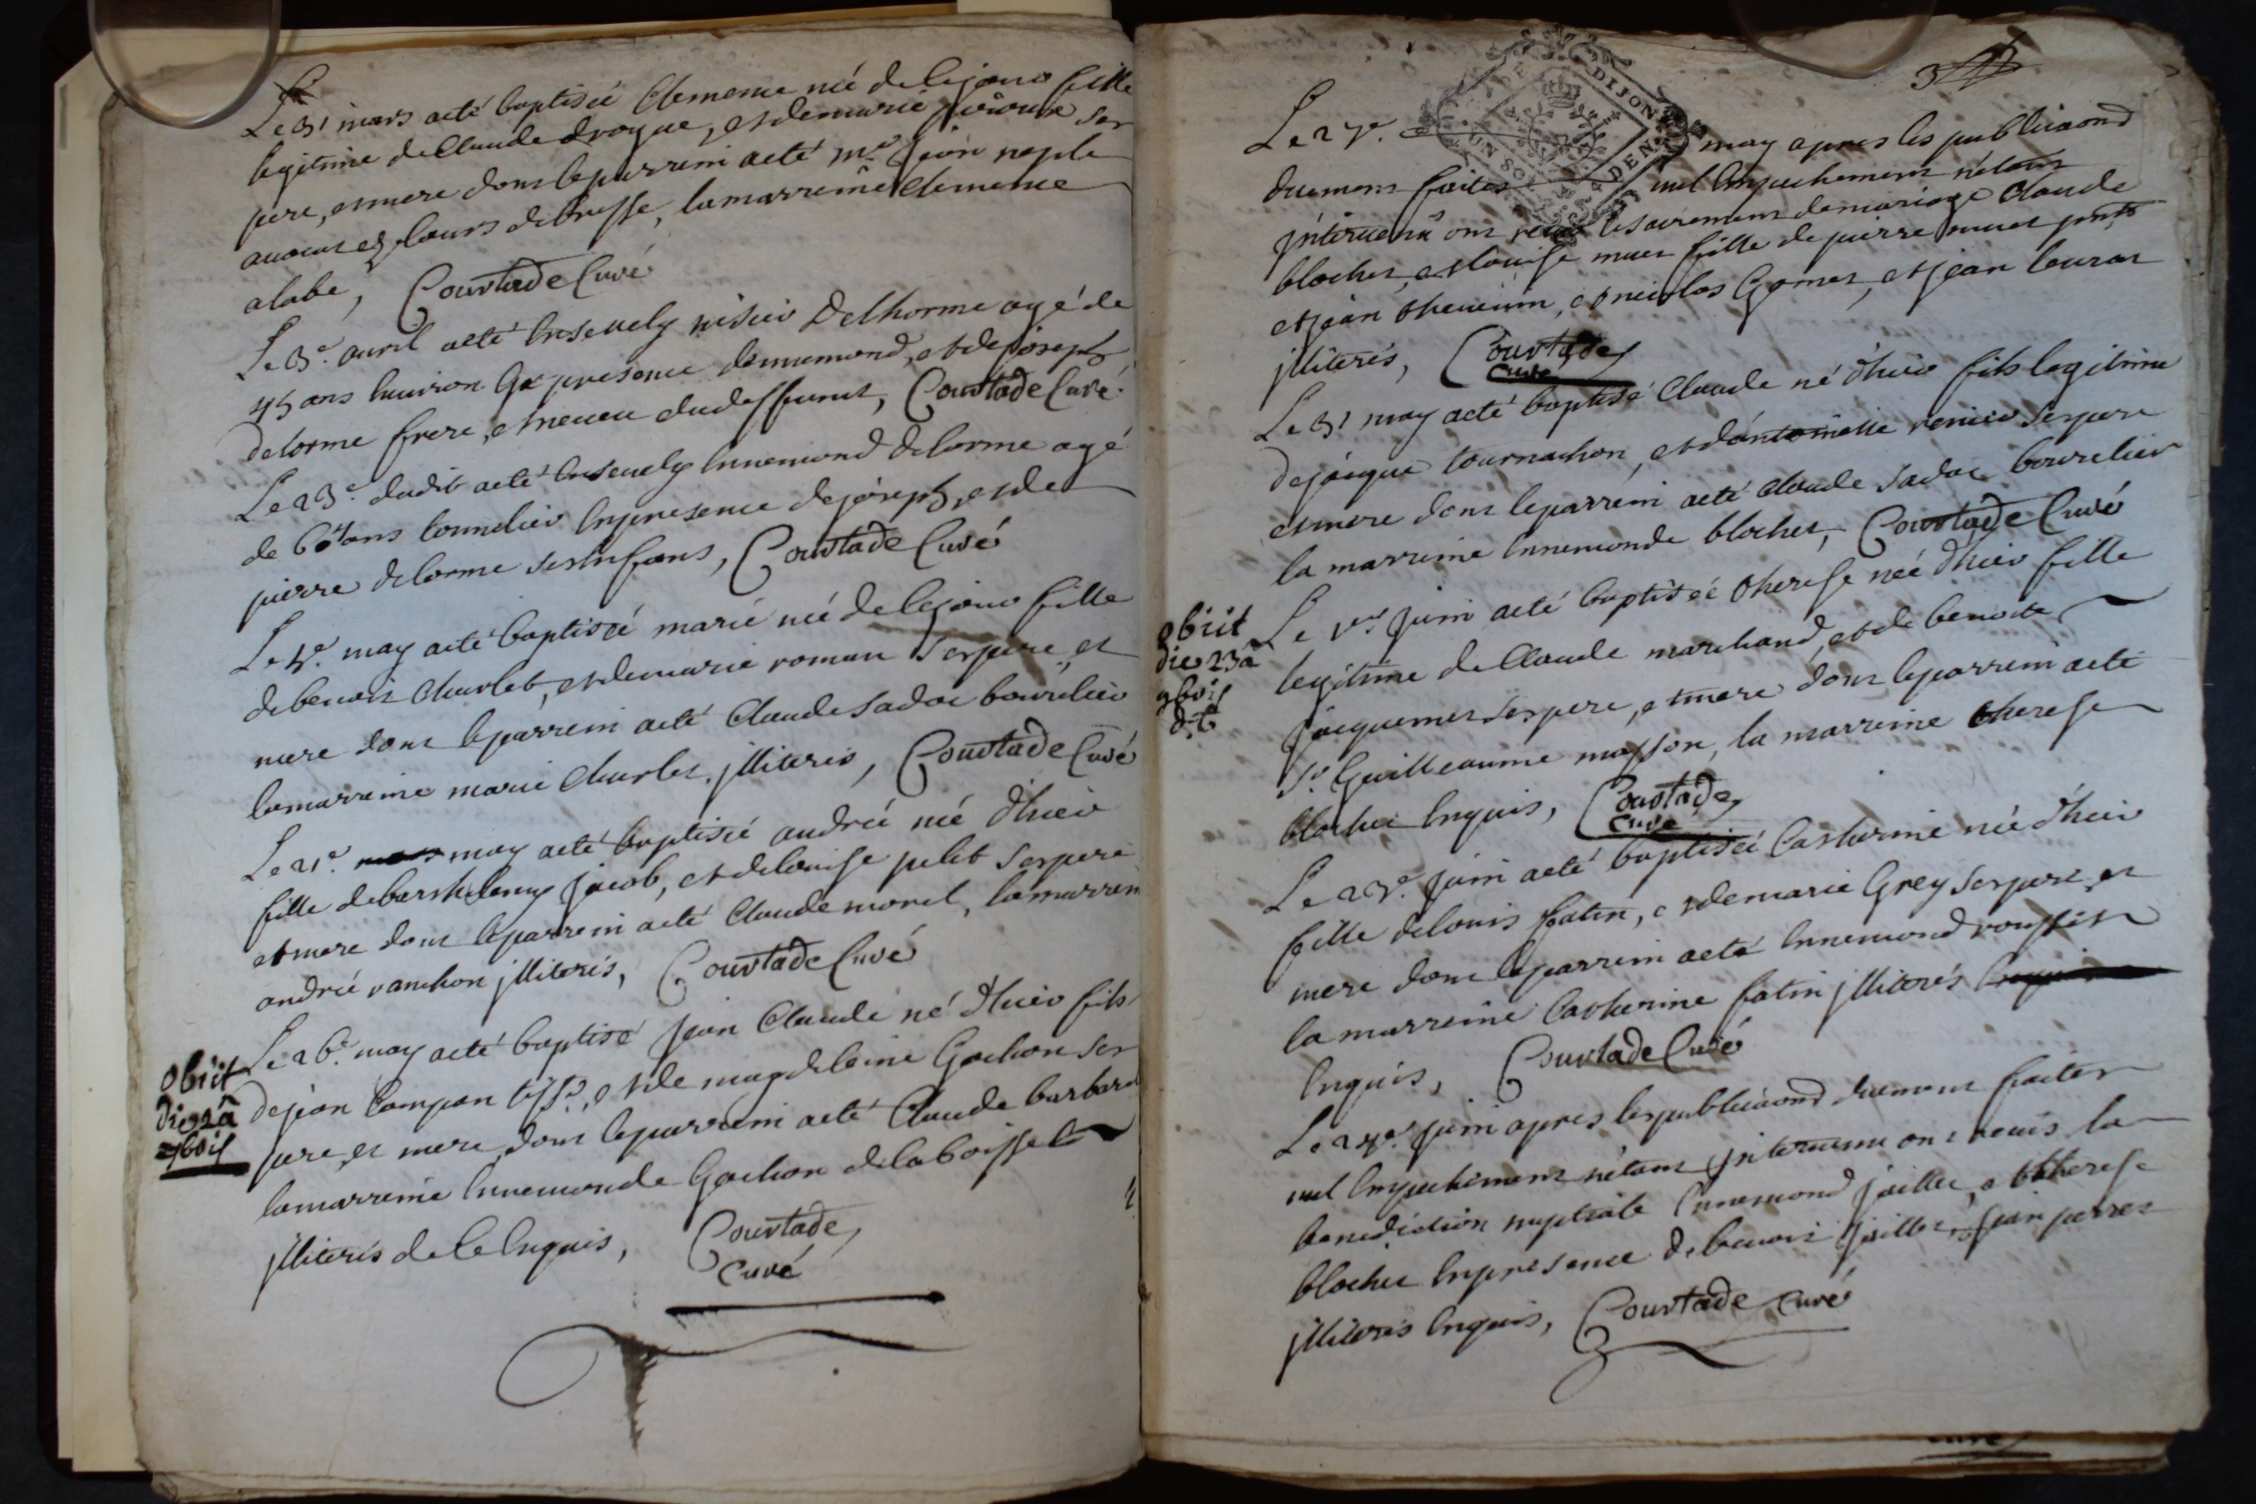 Le 31 mars acté baptisée Clemence née de le jour fille
legitime de Claude droque, et de marie ses
pere, et mere dont le parrein acté me jean
avocat es Cours de bresse, la marreine Clemence
alabe, Courtade Curé
Le 3e. avril acté Enseuely nisier Delhorme agé de
45 ans Environ En presence dennemond, et de joseph
delorme frere, et neveu du deffunt, Courtade Curé
Le 23e. dudit acté Enseuely Ennemond delorme agé
de 60 ans tonnelier En presence de joseph, et de
pierre delorme ses Enfans, Courtade Curé
Le 4e. may acté baptisée marie née de le jour fille
de benoit Charlet, et de marie roman ses pere, et
mere dont le parrein acté Claude sadoc bourelier
la marreine marie Charlet illiterés, Courtade Curé
Le 21e. may acté baptisée andrée née d'hier
fille de barthelemy jacob, et de louise petit ses pere
et mere dont le parrein acté Claude morel, la marrein
andrée vanchon illiterés, Courtade Curé
Le 26e. may acté baptisé jean Claude né d'hier fils
de jean Compan tiss.d, et de magdeleine Gachon ses
pere, et mere dont le parrein acté Claude barbard
la marreine Ennemonde Gachon de la boisse
illiterés de ce Enquis, Courtade
Curé
obiit
die 92a
9bris
Le 27e. may apres les publicaond
duement faites nul Empechement n'etant
intervenu ont reçus le sacrement de mariage Claude
blochet, et louise muet fille de pierre muet pnts
et jean thevenin, et nicolas Gomet, et jean
illiterés, Courtade
Curé
Le 31 may acté baptisé Claude né d'hier fils legitime
de jaque tournachon, et d'antoinette venier ses pere
et mere dont le parrein acté Claude sadoc bourelier
la marreine Ennemonde blochet, Courtade Curé
Le 1er juin acté baptisée therese née d'hier fille
legitime de Claude marchand, et de benoite
jacquemet ses pere, et mere dont le parrein acté
sr. Guilleaume masson, la marreine therese
blochet Enquis, Courtade
Curé
obiit
die 23a
9bris
d.t
Le 23e. juin acté baptisée Catherine née d'hier
fille de louis fatin, et de marie Grey ses pere, et
mere dont le parrein acté Ennemond
la marreine Catherine fatin illiterés
Enquis, Courtade Curé
Le 24e. juin apres les publicaond duement faites
nul Empechement n'etant intervenu ont reçus la
benediction nuptiale Ennemond jaillet, et therese
blochet En presence de benoit jaillet, jean perret
illiterés Enquis, Courtade Curé
DIJON
UN SOL